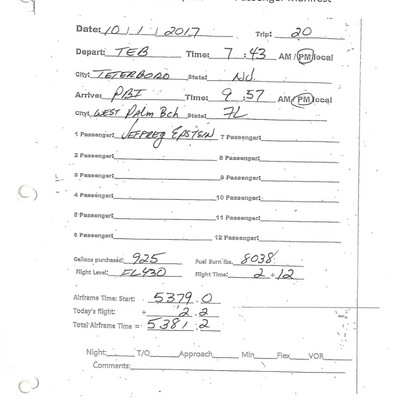 Passenger Manifest
Date: 10/1/2017 Trip: 20
Depart: TEB Time: 7:43 AM/PM local
City: TETERBORO State: NJ
Arrive: PBI Time: 9:57 AM/PM local
City: WEST PALM Bch State: FL
1 Passenger: JEFFREY EPSTEIN 7 Passenger:
2 Passenger: 8 Passenger:
3 Passenger: 9 Passenger:
4 Passenger: 10 Passenger:
5 Passenger: 11 Passenger:
6 Passenger: 12 Passenger:
Gallons purchased: 925 Fuel Burn lbs. 8038
Flight Level: FL430 Flight Time: 2+12
Airframe Time: Start: 5379.0
Today's flight: + 2.2
Total Airframe Time = 5381.2
Night: T/O Approach Min Flex VOR
Comments: